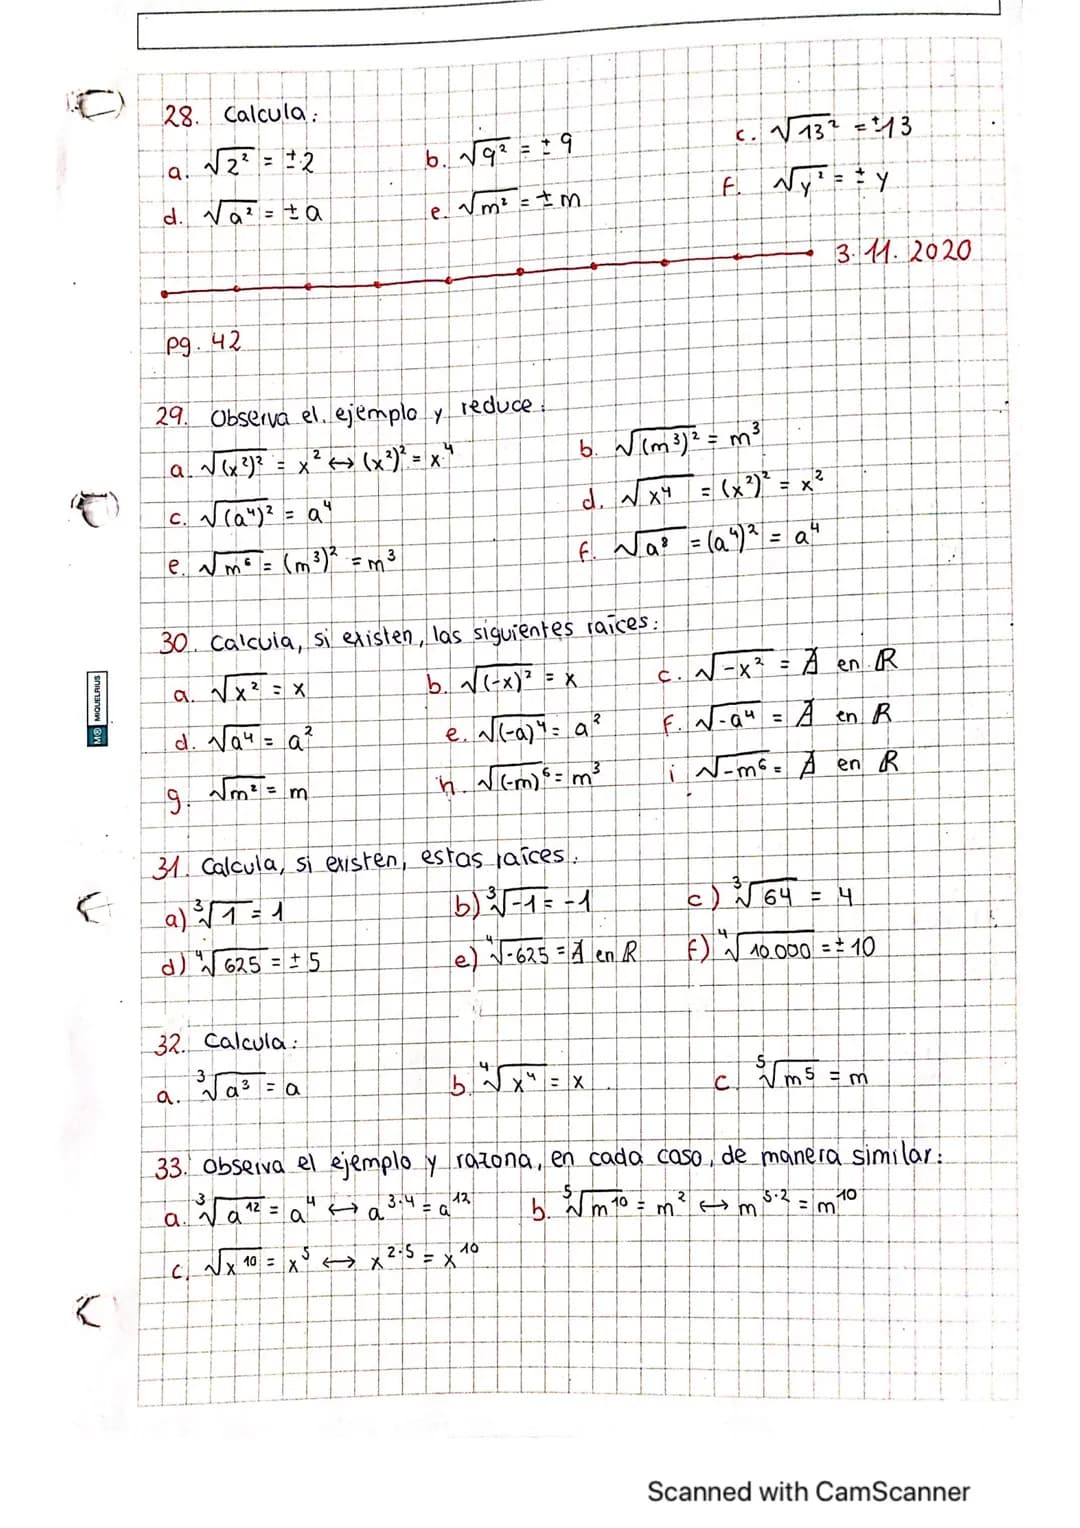 28. Calcula:
a. √2² = ±2 b. √9² = ±9 c. √13² = ±13
d. √a² = ±a e. √m² = ±m f. √y² = ±y
3.11.2020
pg. 42
29. Observa el ejemplo y reduce:
a. √(x²)² = x² ↔ (x²)² = x⁴ b. √(m³)² = m³
c. √(a⁴)² = a⁴ d. √x⁴ = (x²)² = x²
e. √m⁶ = (m³)² = m³ f. √a⁸ = (a⁴)² = a⁴
30. Calcula, si existen, las siguientes raíces:
a. √x² = x b. √(-x)² = x c. √-x² = ∄ en R
d. √a⁴ = a² e. √(-a)⁴ = a² f. √-a⁴ = ∄ en R
g. √m² = m h. √(-m)⁶ = m³ i √-m⁶ = ∄ en R
31. Calcula, si existen, estas raíces.
a) ³√1 = 1 b) ³√-1 = -1 c) ³√64 = 4
d) ⁴√625 = ±5 e) ⁴√-625 = ∄ en R f) ⁴√10.000 = ±10
32. Calcula:
a. ³√a³ = a b. ⁴√x⁴ = x c. ⁵√m⁵ = m
33. Observa el ejemplo y razona, en cada caso, de manera similar:
a. ³√a¹² = a⁴ ↔ a³·⁴ = a¹² b. ⁵√m¹⁰ = m² ↔ m⁵·² = m¹⁰
c. √x¹⁰ = x⁵ ↔ x²·⁵ = x¹⁰
MIQUELRIUS
Scanned with CamScanner